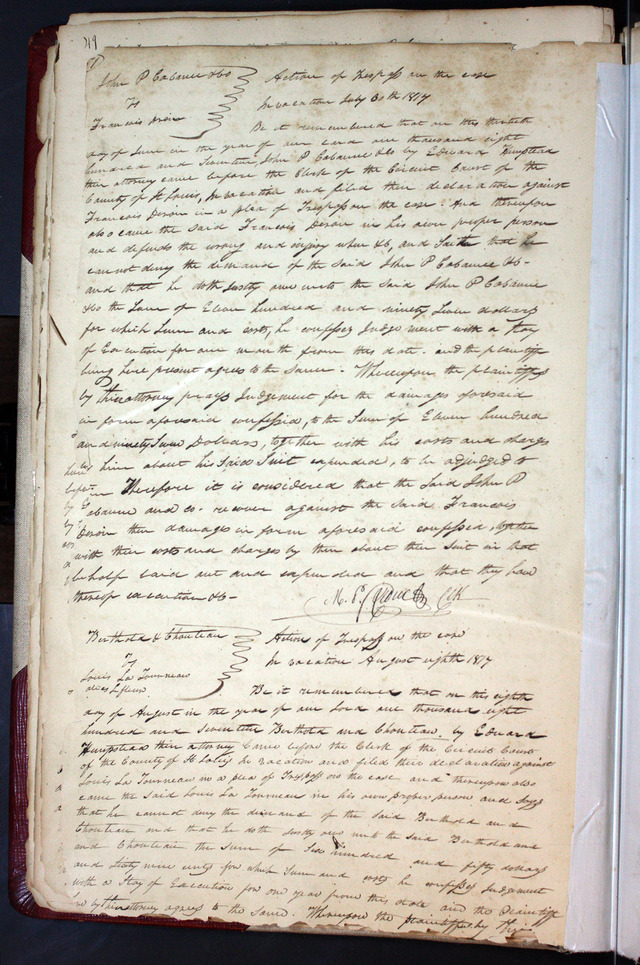 John P Cabanne &Co Action of Trespass on the case
vs In vacation July 30th 1817
Francois
Be it remembered that on this thirtieth
day of June in the year of our Lord one thousand eight
hundred and Seventeen John P Cabanne &Co by Edward Hempstead
their attorney came before the Clerk of the Circuit Court of the
County of St Louis, In vacation and filed their declaration against
Francois Deroin in a plea of Trespass on the case: And thereupon
also came the said Francois Deroin in his own proper person
and defends the wrong and injury when &c, and Saith that he
cannot deny the demand of the said John P Cabanne &Co-
and that he doth Justly owe unto the said John P Cabanne
&Co the Sum of Eleven hundred and ninety Seven dollars
for which Sum and costs, he confesses Judgement with a Stay
of Execution for one month from this date. and the plaintiffs
being here present agrees to the same. Whereupon the plaintiffs
by their attorney prays Judgement for the damages aforesaid
in form aforesaid confessed, to the Sum of Eleven hundred
and ninety Seven Dollars, together with his costs and charges
him about his Said Suit expended, to be adjudged to
Therefore it is considered that the said John P
Cabanne and Co. recover against the said Francois
Deroin their damages in form aforesaid confessed, together
with their costs and charges by them about their Suit in that
behalf laid out and expended and that they have
thereof execution &c-
Clk
Berthold & Chouteau Action of Trespass on the case
vs In vacation August eighth 1817
Louis La Tourneau
alias Lafleur
Be it remembered that on this eighth
day of August in the year of our Lord one thousand eight
hundred and Seventeen Berthold and Chouteau. by Edward
Hempstead their attorney Came before the Clerk of the Circuit Court
of the County of St Louis In vacation and filed their declaration against
Louis La Tourneau in a plea of Trespass on the case and thereupon also
came the said Louis La Tourneau in his own proper person and Says
that he cannot deny the demand of the said Berthold and
Chouteau and that he doth Justly owe unto the said Berthold and
and Chouteau the Sum of Six hundred and fifty dollars
and Sixty nine cents for which Sum and costs he confesses Judgement
with a Stay of Execution for one year from this date and the Plaintiffs
by their attorney agrees to the same. Whereupon the plaintiffs by their